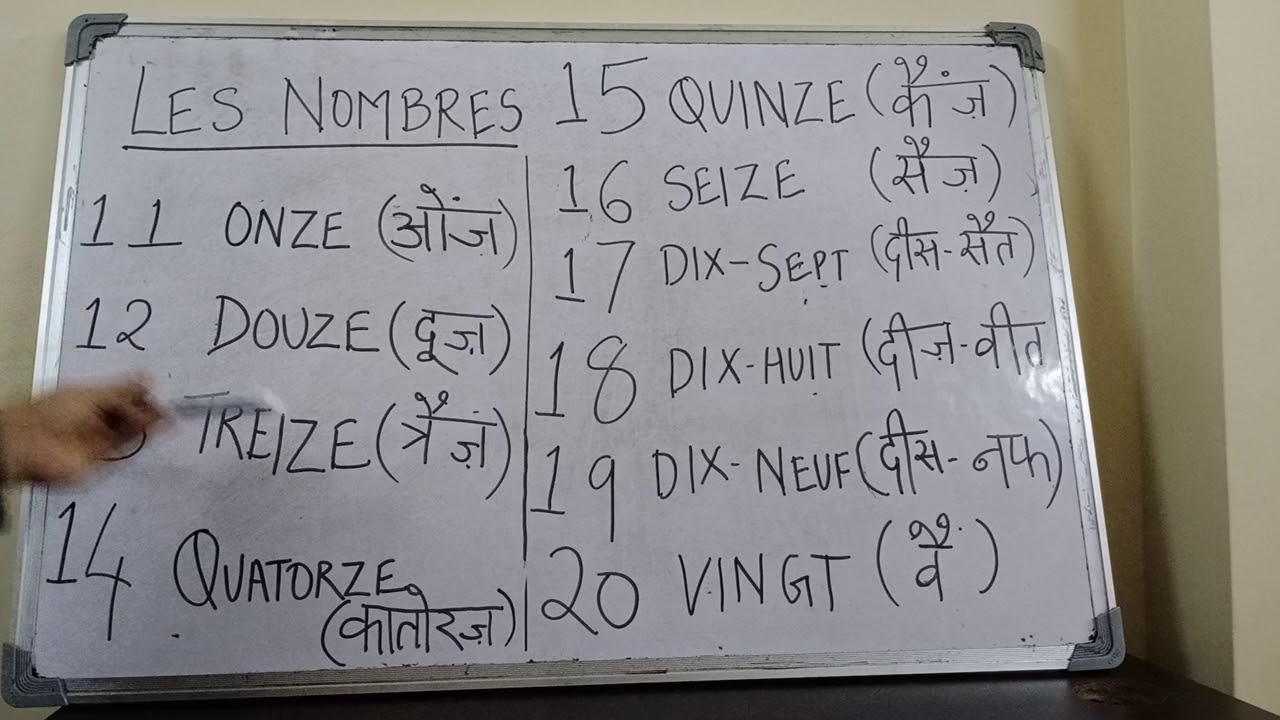 LES NOMBRES
11 ONZE (ओंज़)
12 DOUZE (दूज़)
TREIZE (त्रैज़)
14 QUATORZE
(कातोरज़)
15 QUINZE (कैंज़)
16 SEIZE (सैज़)
17 DIX-SEPT (दीस-सैत)
18 DIX-HUIT (दीज़-वीत
19 DIX-NEUF (दीस-नफ)
20 VINGT (वैं)